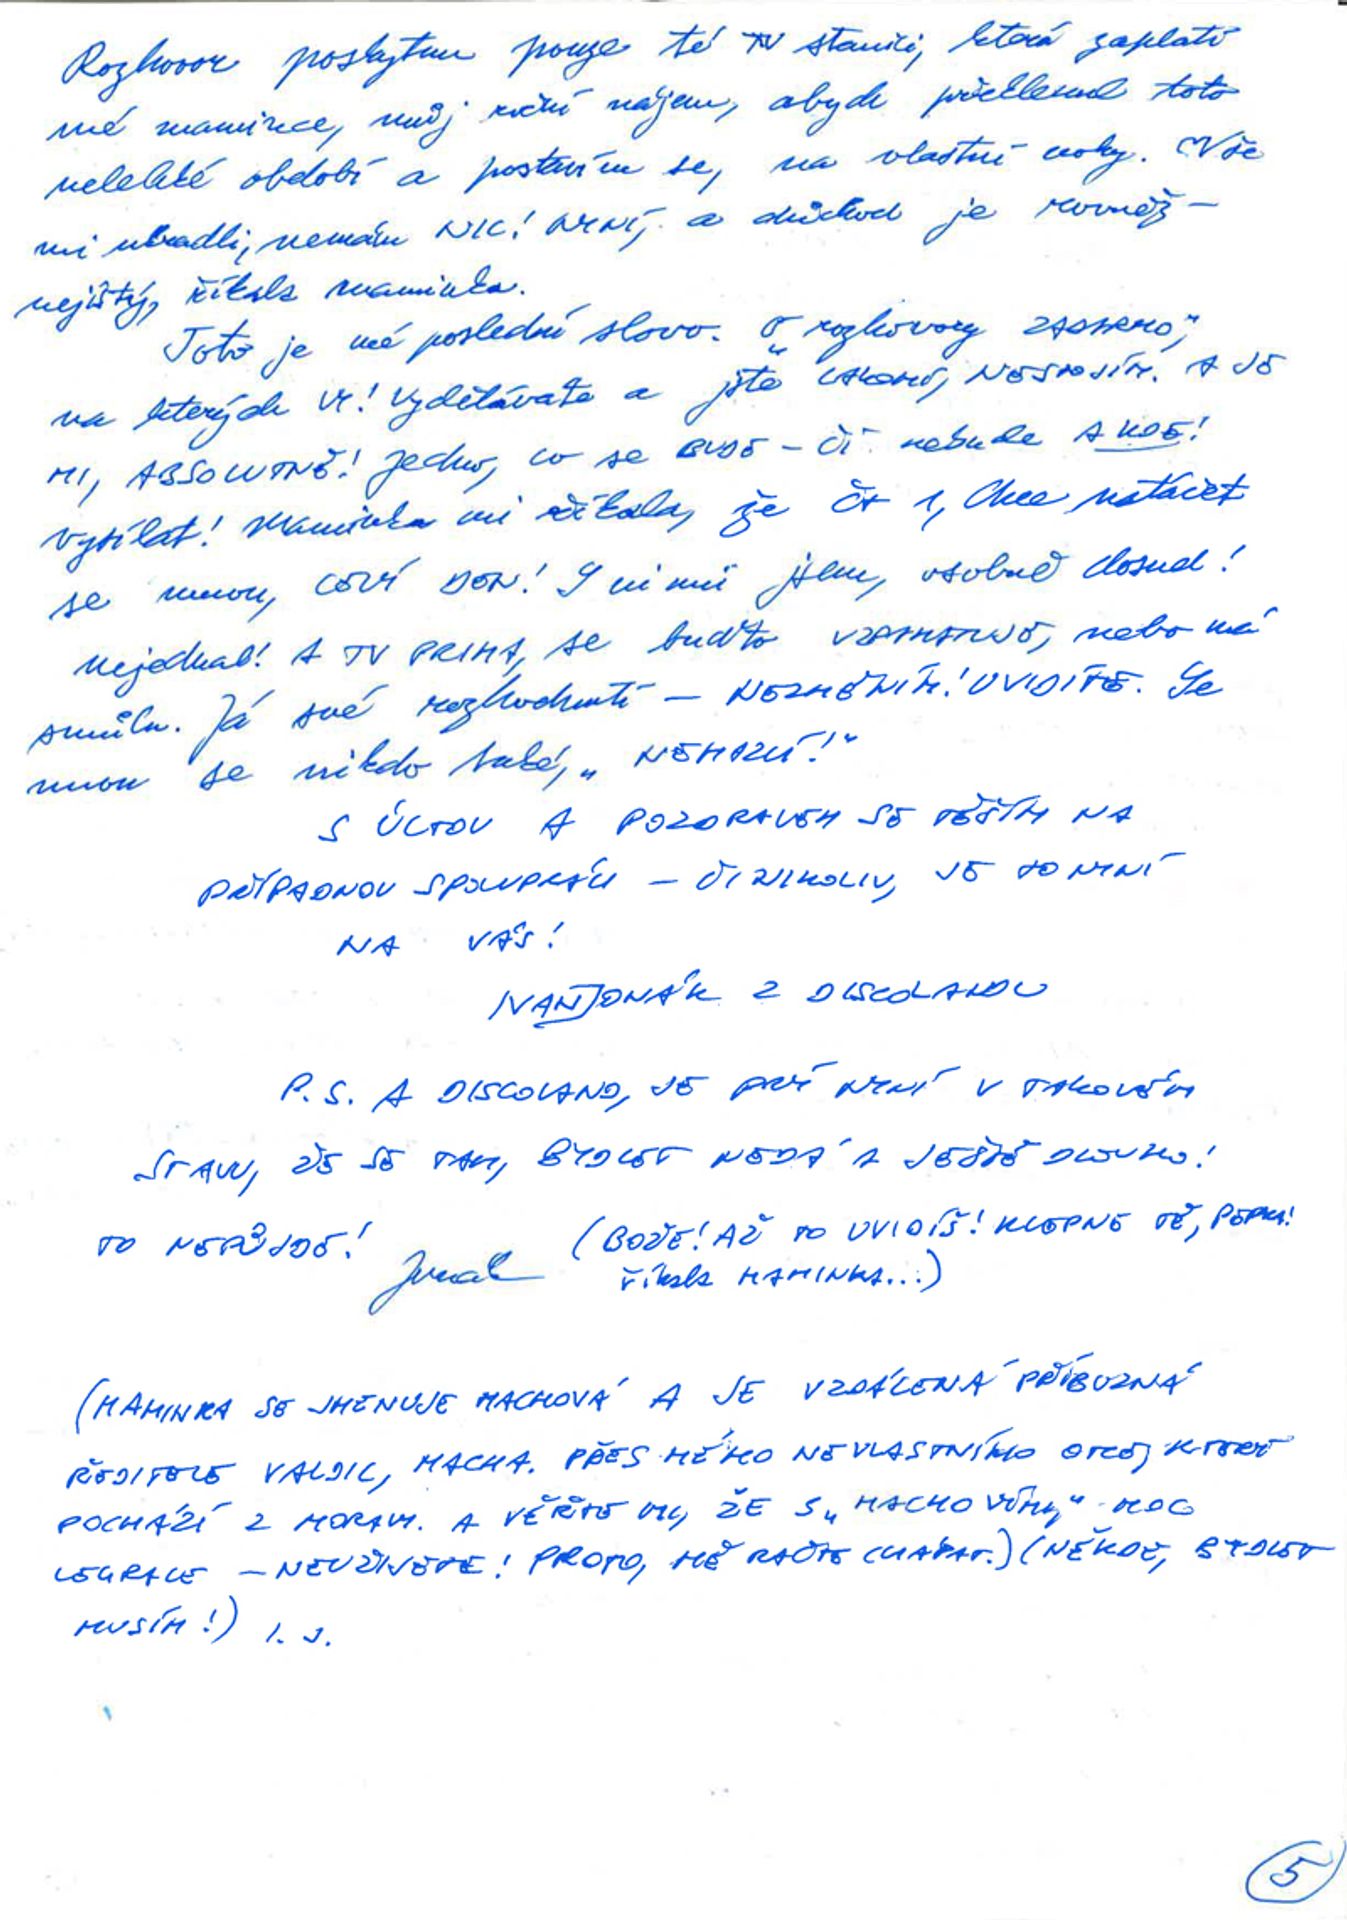 Rozhovor poskytnu pouze té TV stanici, která zaplatí
mé mamince, můj roční nájem, abych překlenul toto
nelehké období a postavím se, na vlastní nohy. Vše
mi ukradli, nemám NIC! NYNÍ, a důchod je rovněž –
nejistý, říkala maminka.
Toto je mé poslední slovo. O „rozhovory ZADARMO,"
na kterých VY! vyděláváte a jste LAKOMÍ, NESTOJÍM. A JE
MI, ABSOLUTNĚ! jedno, co se BUDE – či nebude A KDE!
vysílat! Maminka mi říkala, že ČT 1, chce natáčet
se mnou, CELÝ DEN! S nimi jsem, osobně dosud!
nejednal! A TV PRIMA, se buďto VZPAMATUJE, nebo má
smůlu. Já své rozhodnutí – NEZMĚNÍM! UVIDÍTE. Se
mnou se nikdo také, „NEMAZLÍ!"
S ÚCTOU A POZDRAVEM SE TĚŠÍM NA
PŘÍPADNOU SPOLUPRÁCI – ČI NIKOLIV, JE TO NYNÍ
NA VÁS!
IVAN JONÁK Z DISCOLANDU
P.S. A DISCOLAND, JE PRÝ NYNÍ V TAKOVÉM
STAVU, ŽE SE TAM, BYDLET NEDÁ A JEŠTĚ DLOUHO!
TO NEPŮJDE!
Jonák
(BOŽE! AŽ TO UVIDÍŠ! KLEPNE TĚ, PEPKA!
říkala MAMINKA...)
(MAMINKA SE JMENUJE MACHOVÁ A JE VZDÁLENÁ PŘÍBUZNÁ
ŘEDITELE VALDIC, MACHA. PŘES MÉHO NEVLASTNÍHO OTCE, KTERÝ
POCHÁZÍ Z MORAVY. A VĚŘTE MI, ŽE S „MACHOVÝMI," MOC
LEGRACE – NEUŽIJETE! PROTO, MĚ RAČTE CHÁPAT.) (NĚKDE, BYDLET
MUSÍM!) I. J.
5